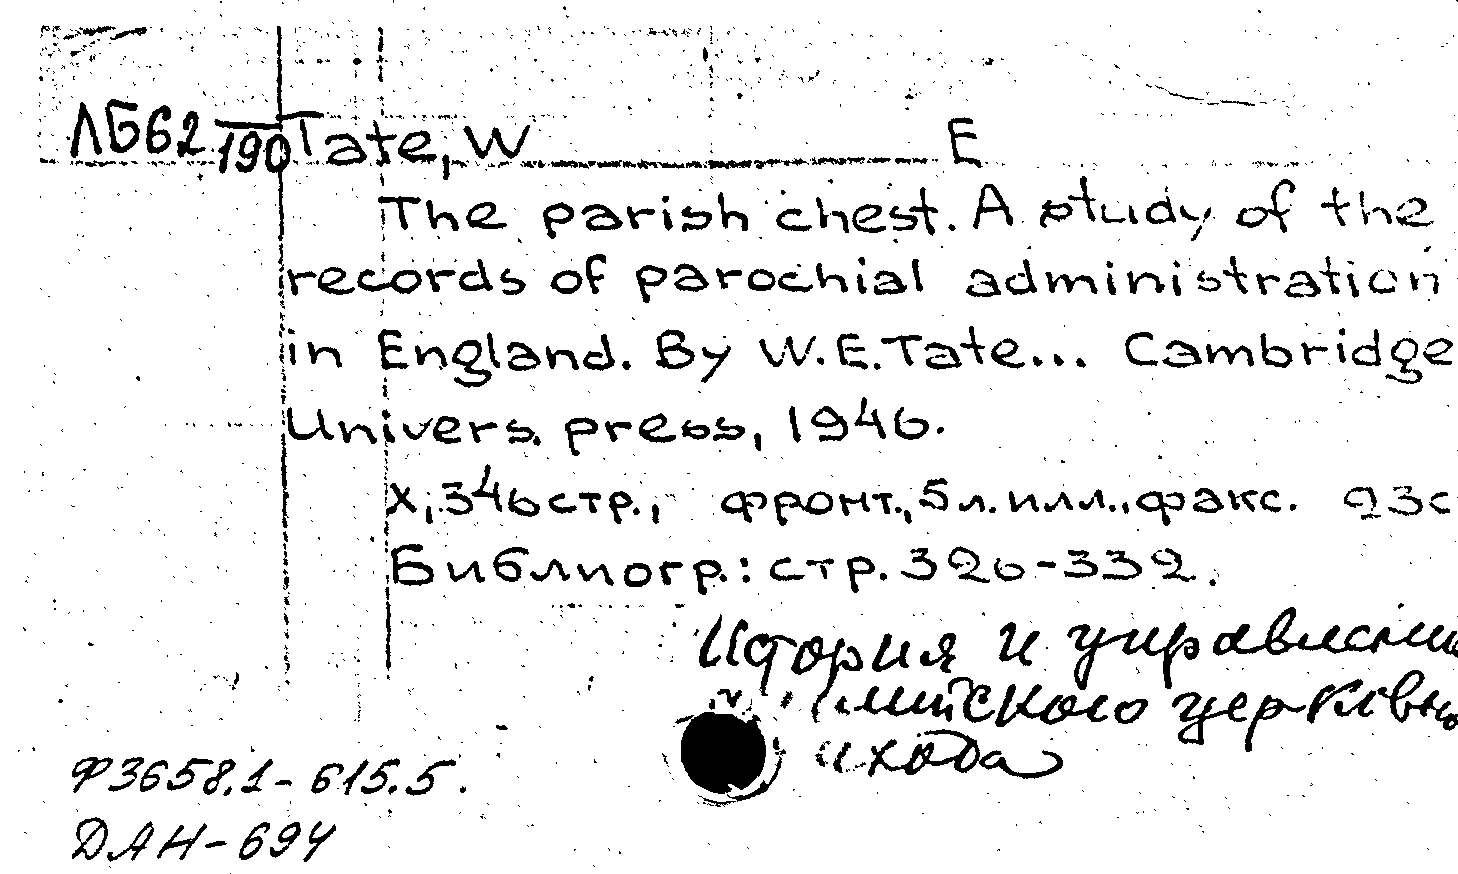 ЛБ62/190 Tate, W E
The parish chest. A study of the
records of parochial administration
in England. By W.E. Tate... Cambridge
Univers. press, 1946.
X, 346 стр., фронт., 5 л. илл., факс. 23с
Библиогр.: стр. 326-332.
История и управлени
лийского церковно
ихода
Ф3658.1-615.5.
ДАН-694